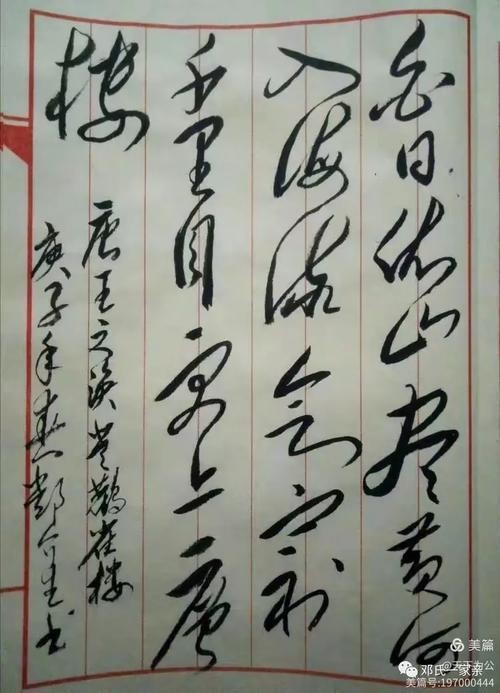 白日依山尽黄河
入海流欲穷
千里目更上一层
楼
唐王之涣登鹳雀楼
庚子年春邓生书
美篇
@天下为公
邓氏一家亲
美篇号:197000444